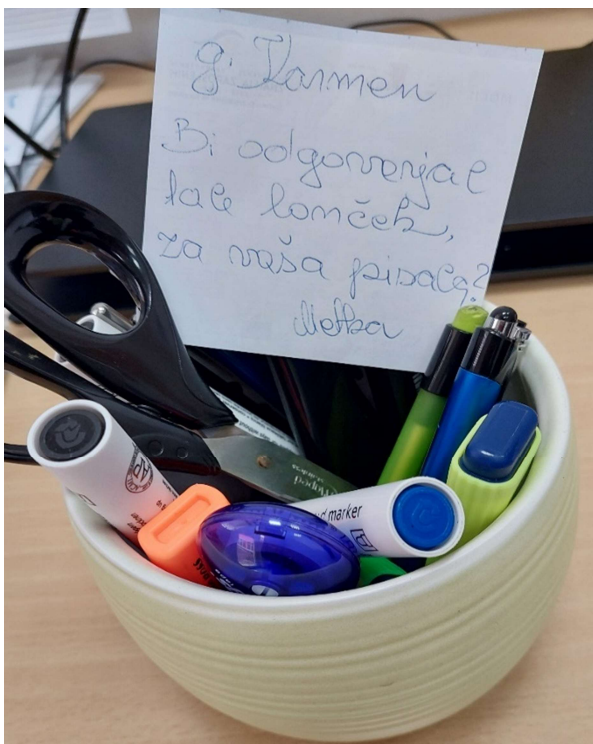 g. Karmen
Bi odgovarjal
tale lonček,
za vaša pisala?
Metka
Maped
marker